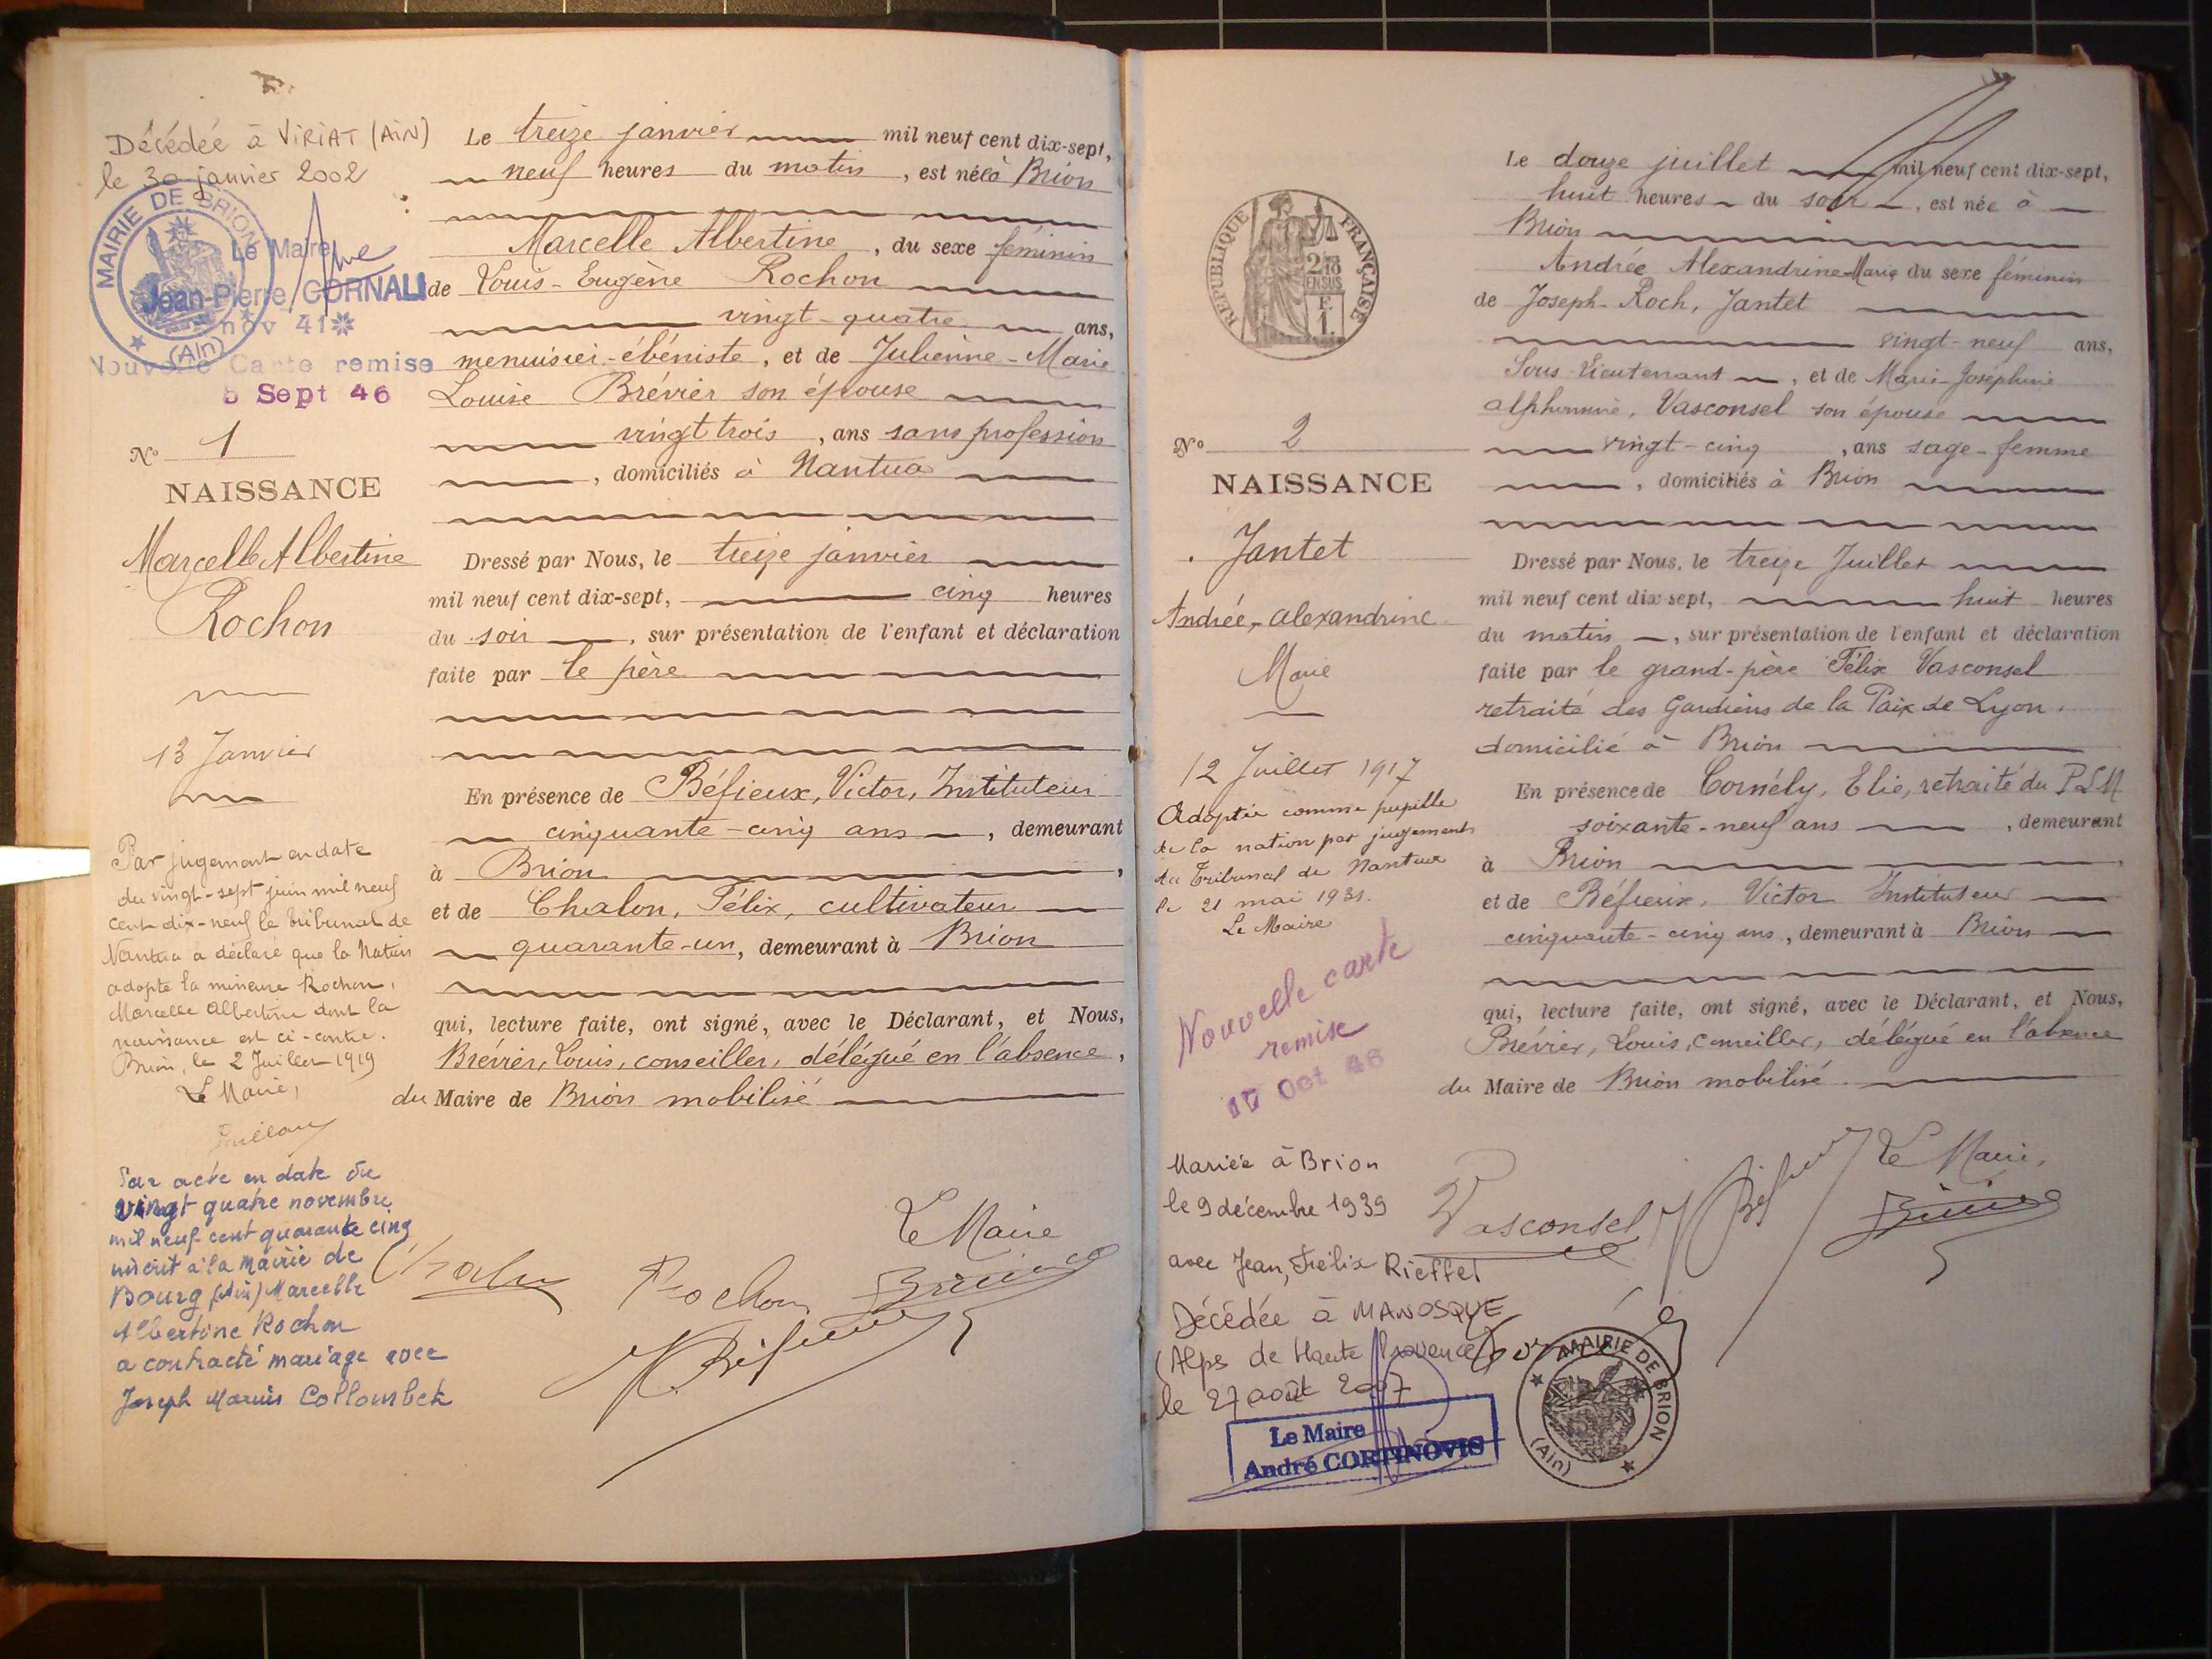 Décédée à VIRIAT (AIN)
le 30 janvier 2002
MAIRIE DE BRION
(Ain)
Le Maire
Jean-Pierre CORNALI
nov 41
Nouvelle Carte remise
5 Sept 46
N° 1
NAISSANCE
Marcelle Albertine
Rochon
13 Janvier
Par jugement en date
du vingt-sept juin mil neuf
cent dix-neuf le tribunal de
Nantua a déclaré que la Nation
adopte la mineure Rochon,
Marcelle Albertine dont la
naissance est ci-contre.
Brion, le 2 Juillet 1919
Le Maire,
Par acte en date du
vingt quatre novembre
mil neuf cent quarante cinq
inscrit à la mairie de
Bourg (Ain) Marcelle
Albertine Rochon
a contracté mariage avec
Joseph Marius Collombet
Le treize janvier mil neuf cent dix-sept,
neuf heures du matin, est née à Brion
Marcelle Albertine, du sexe féminin
de Louis-Eugène Rochon
vingt-quatre ans,
menuisier-ébéniste, et de Julienne-Marie
Louise Brévier son épouse
vingt trois, ans sans profession
, domiciliés à Nantua
Dressé par Nous, le treize janvier
mil neuf cent dix-sept, cinq heures
du soir, sur présentation de l'enfant et déclaration
faite par le père
En présence de Béfieux, Victor, Instituteur
cinquante-cinq ans, demeurant
à Brion,
et de Chalon, Félix, cultivateur
quarante-un, demeurant à Brion
qui, lecture faite, ont signé, avec le Déclarant, et Nous,
Brévier, Louis, conseiller, délégué en l'absence,
du Maire de Brion mobilisé
Le Maire
Chalon Rochon Brévier
V. Béfieux
REPUBLIQUE FRANÇAISE
2/10
EN SUS
F.
1.
N° 2
NAISSANCE
Jantet
Andrée-Alexandrine
Marie
12 Juillet 1917
Adoptée comme pupille
de la nation par jugement
du Tribunal de Nantua
le 21 mai 1931.
Le Maire
Nouvelle carte
remise
Oct 46
Mariée à Brion
le 9 décembre 1939
avec Jean, Félix Rieffel
Décédée à MANOSQUE
(Alps de Haute Provence)
le 27 août 2007
Le Maire
André CORTINOVIS
Le douze juillet mil neuf cent dix-sept,
huit heures du soir, est née à
Brion
Andrée Alexandrine Marie du sexe féminin
de Joseph-Roch, Jantet
vingt-neuf ans,
Sous-Lieutenant, et de Marie-Joséphine
alphonsine, Vasconsel son épouse
vingt-cinq, ans sage-femme
, domiciliés à Brion
Dressé par Nous, le treize Juillet
mil neuf cent dix-sept, huit heures
du matin, sur présentation de l'enfant et déclaration
faite par le grand-père Félix Vasconsel
retraité des Gardiens de la Paix de Lyon.
domicilié à Brion
En présence de Cornély, Elie, retraité du PLM
soixante-neuf ans, demeurant
à Brion,
et de Béfieux, Victor Instituteur
cinquante-cinq ans, demeurant à Brion
qui, lecture faite, ont signé, avec le Déclarant, et Nous,
Brévier, Louis, conseiller, délégué en l'absence
du Maire de Brion mobilisé.
Le Maire,
Vasconsel V. Béfieux Brévier
MAIRIE DE BRION
(Ain)